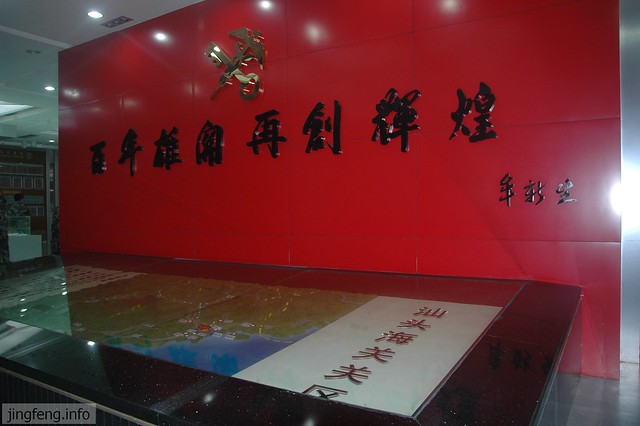 百年雄关再创辉煌
牟新生
汕头海关关区
jingfeng.info